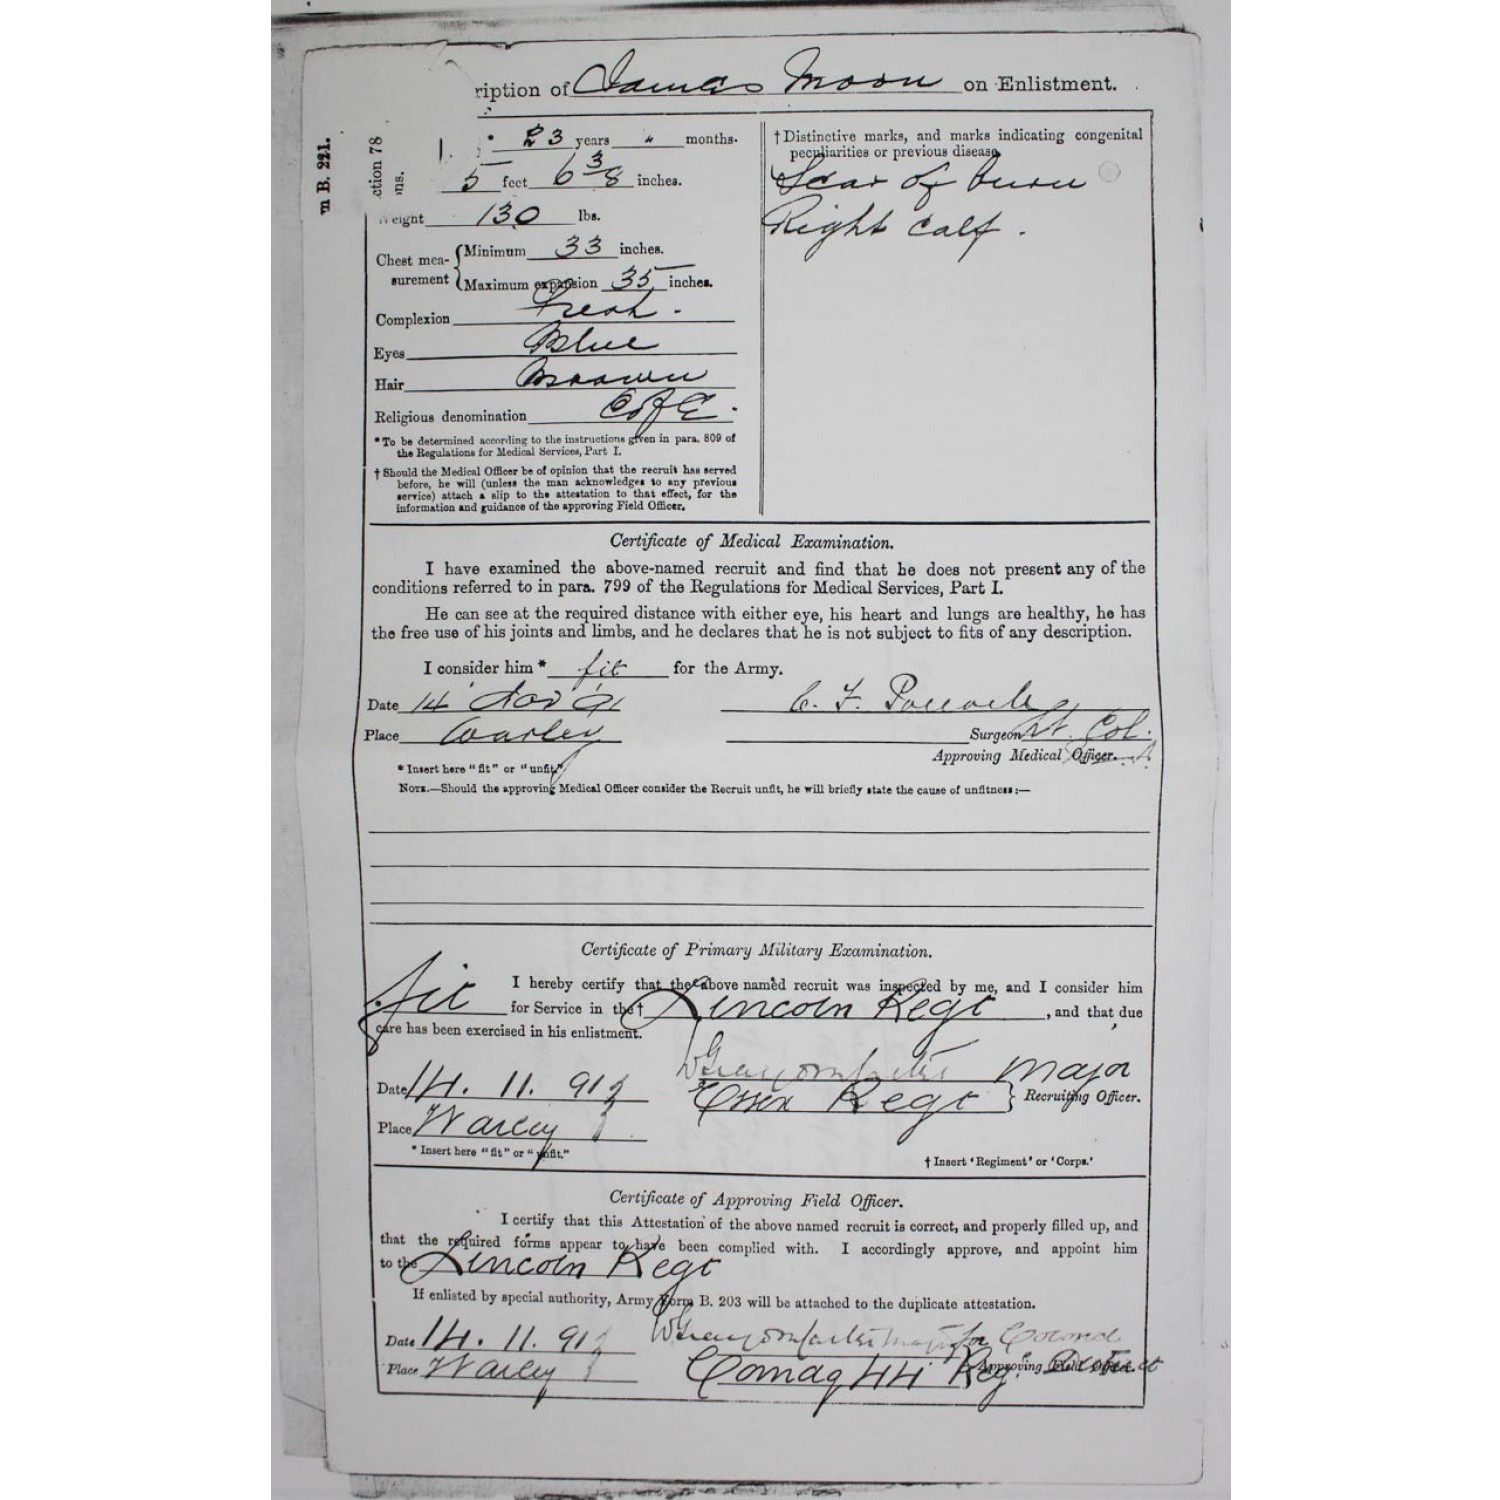 ription of James Moon on Enlistment.
m B. 221.
ction 78
ns.
23 years " months.
5 feet 6 3/8 inches.
eight 130 lbs.
Chest mea- Minimum 33 inches.
surement Maximum expansion 35 inches.
Complexion Fresh.
Eyes Blue
Hair Brown
Religious denomination C of E.
* To be determined according to the instructions given in para. 809 of
the Regulations for Medical Services, Part I.
† Should the Medical Officer be of opinion that the recruit has served
before, he will (unless the man acknowledges to any previous
service) attach a slip to the attestation to that effect, for the
information and guidance of the approving Field Officer.
† Distinctive marks, and marks indicating congenital
peculiarities or previous disease.
Scar of burn
Right calf.
Certificate of Medical Examination.
I have examined the above-named recruit and find that he does not present any of the
conditions referred to in para. 799 of the Regulations for Medical Services, Part I.
He can see at the required distance with either eye, his heart and lungs are healthy, he has
the free use of his joints and limbs, and he declares that he is not subject to fits of any description.
I consider him * fit for the Army.
Date 14 Nov C. F.
Place Warley Surgeon Lt. Col.
Approving Medical Officer.
* Insert here "fit" or "unfit."
NOTE.—Should the approving Medical Officer consider the Recruit unfit, he will briefly state the cause of unfitness:—
Certificate of Primary Military Examination.
I hereby certify that the above named recruit was inspected by me, and I consider him
fit for Service in the † Lincoln Regt, and that due
care has been exercised in his enlistment.
Major
Date 14. 11. 91 Essex Regt } Recruiting Officer.
Place Warley
* Insert here "fit" or "unfit."
† Insert 'Regiment' or 'Corps.'
Certificate of Approving Field Officer.
I certify that this Attestation of the above named recruit is correct, and properly filled up, and
that the required forms appear to have been complied with. I accordingly approve, and appoint him
to the Lincoln Regt
If enlisted by special authority, Army Form B. 203 will be attached to the duplicate attestation.
Date 14. 11. 91 Major for Colonel
Place Warley Comdg 44 Reg. District Approving Field Officer.